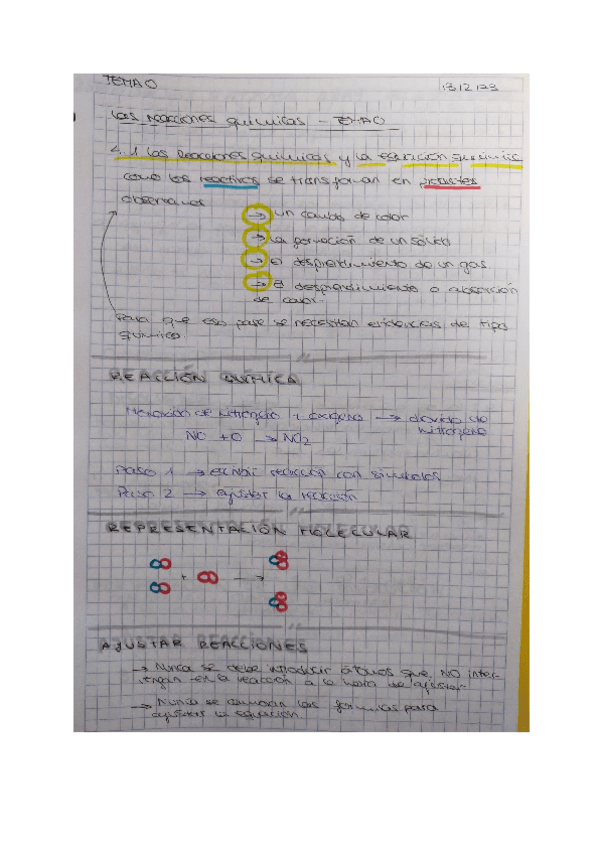 TEMA 0 13/2/23
Las reacciones químicas - TEMA 0
4.1 Las reacciones químicas y la ecuación química
como los reactivos se transforman en productos
observamos → un cambio de color
→ La formación de un sólido
→ el desprendimiento de un gas
→ el desprendimiento o absorción
de calor.
Para que eso pase se necesitan evidencias de tipo
químico.
REACCIÓN QUÍMICA
Monóxido de nitrógeno y oxígeno → dióxido de
nitrógeno
NO + O → NO2
Paso 1 → escribir reacción con símbolos
Paso 2 → ajustar la reacción
REPRESENTACIÓN MOLECULAR
+ →
AJUSTAR REACCIONES
→ Nunca se debe introducir átomos que NO inter-
vengan en la reacción a la hora de ajustar
→ Nunca se cambian las formulas para
ajustar la ecuación.